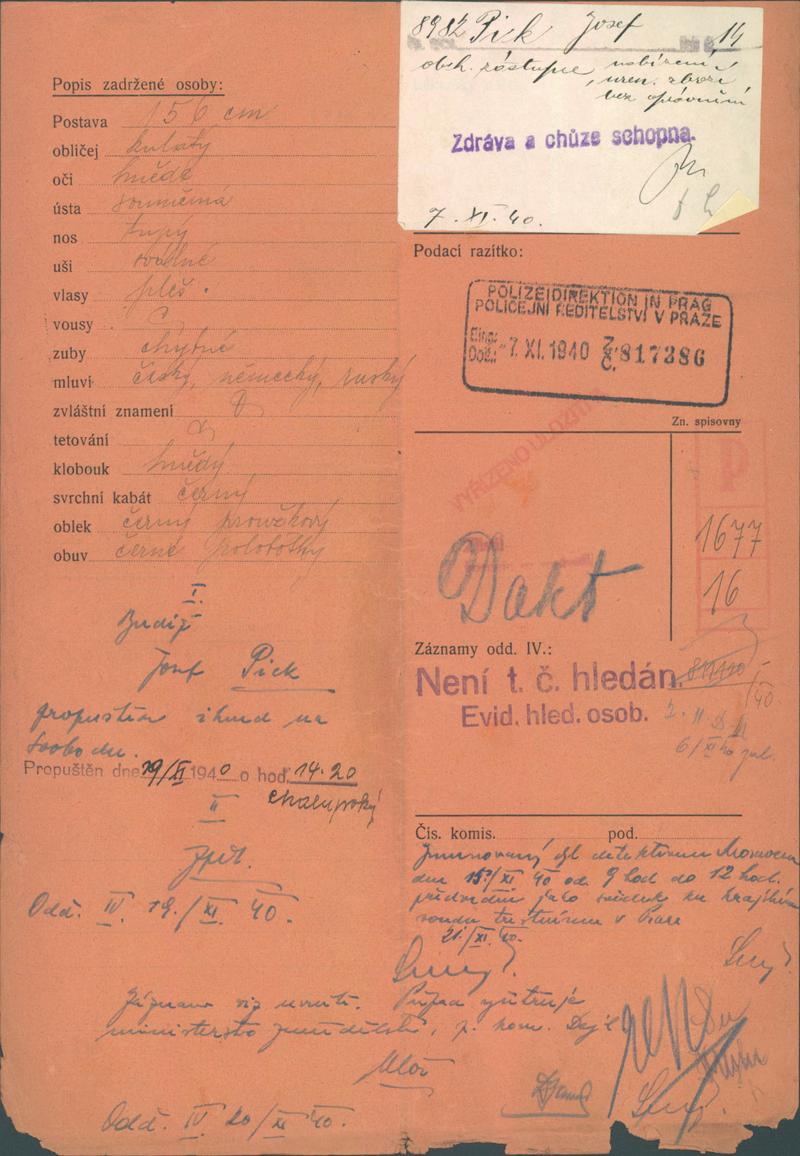 Popis zadržené osoby:
Postava 156 cm
obličej kulatý
oči hnědé
ústa souměrná
nos tupý
uši oválné
vlasy pleš.
vousy
zuby chybné
mluví český, německý, ruský
zvláštní znamení
tetování
klobouk hnědý
svrchní kabát černý
oblek černý proužkový
obuv černé polobotky
I.
Budiž
Josef Pick
propuštěn ihned na
svobodu.
Propuštěn dne 19/XI 1940 o hod. 14.20
II
Zpět.
Odd. IV. 19./XI. 40.
8982 Pik Josef 14
obch. zástupce, nabízení
zboží
bez oprávnění
Zdráva a chůze schopna.
7. XI. 40.
Podací razítko:
POLIZEIDIREKTION IN PRAG
POLICEJNÍ ŘEDITELSTVÍ V PRAZE
Eing.
Doš.: -7. XI. 1940 Z. Č. 817386
Zn. spisovny
VYŘÍZENO ULOŽITI
P
1677
16
Dakt
Záznamy odd. IV.:
Není t. č. hledán.
Evid. hled. osob.
40
6/XI 40
Čís. komis. pod.
Jmenovaný byl detektivem
dne 15./XI 40 od 9 hod do 12 hod.
předveden jako svědek ku krajskému
soudu trestnímu v Praze
21./XI. 40.
Záznam viz uvnitř. Případ vyšetřuje
ministerstvo zemědělství,
Odd. IV. 20/XI 40.